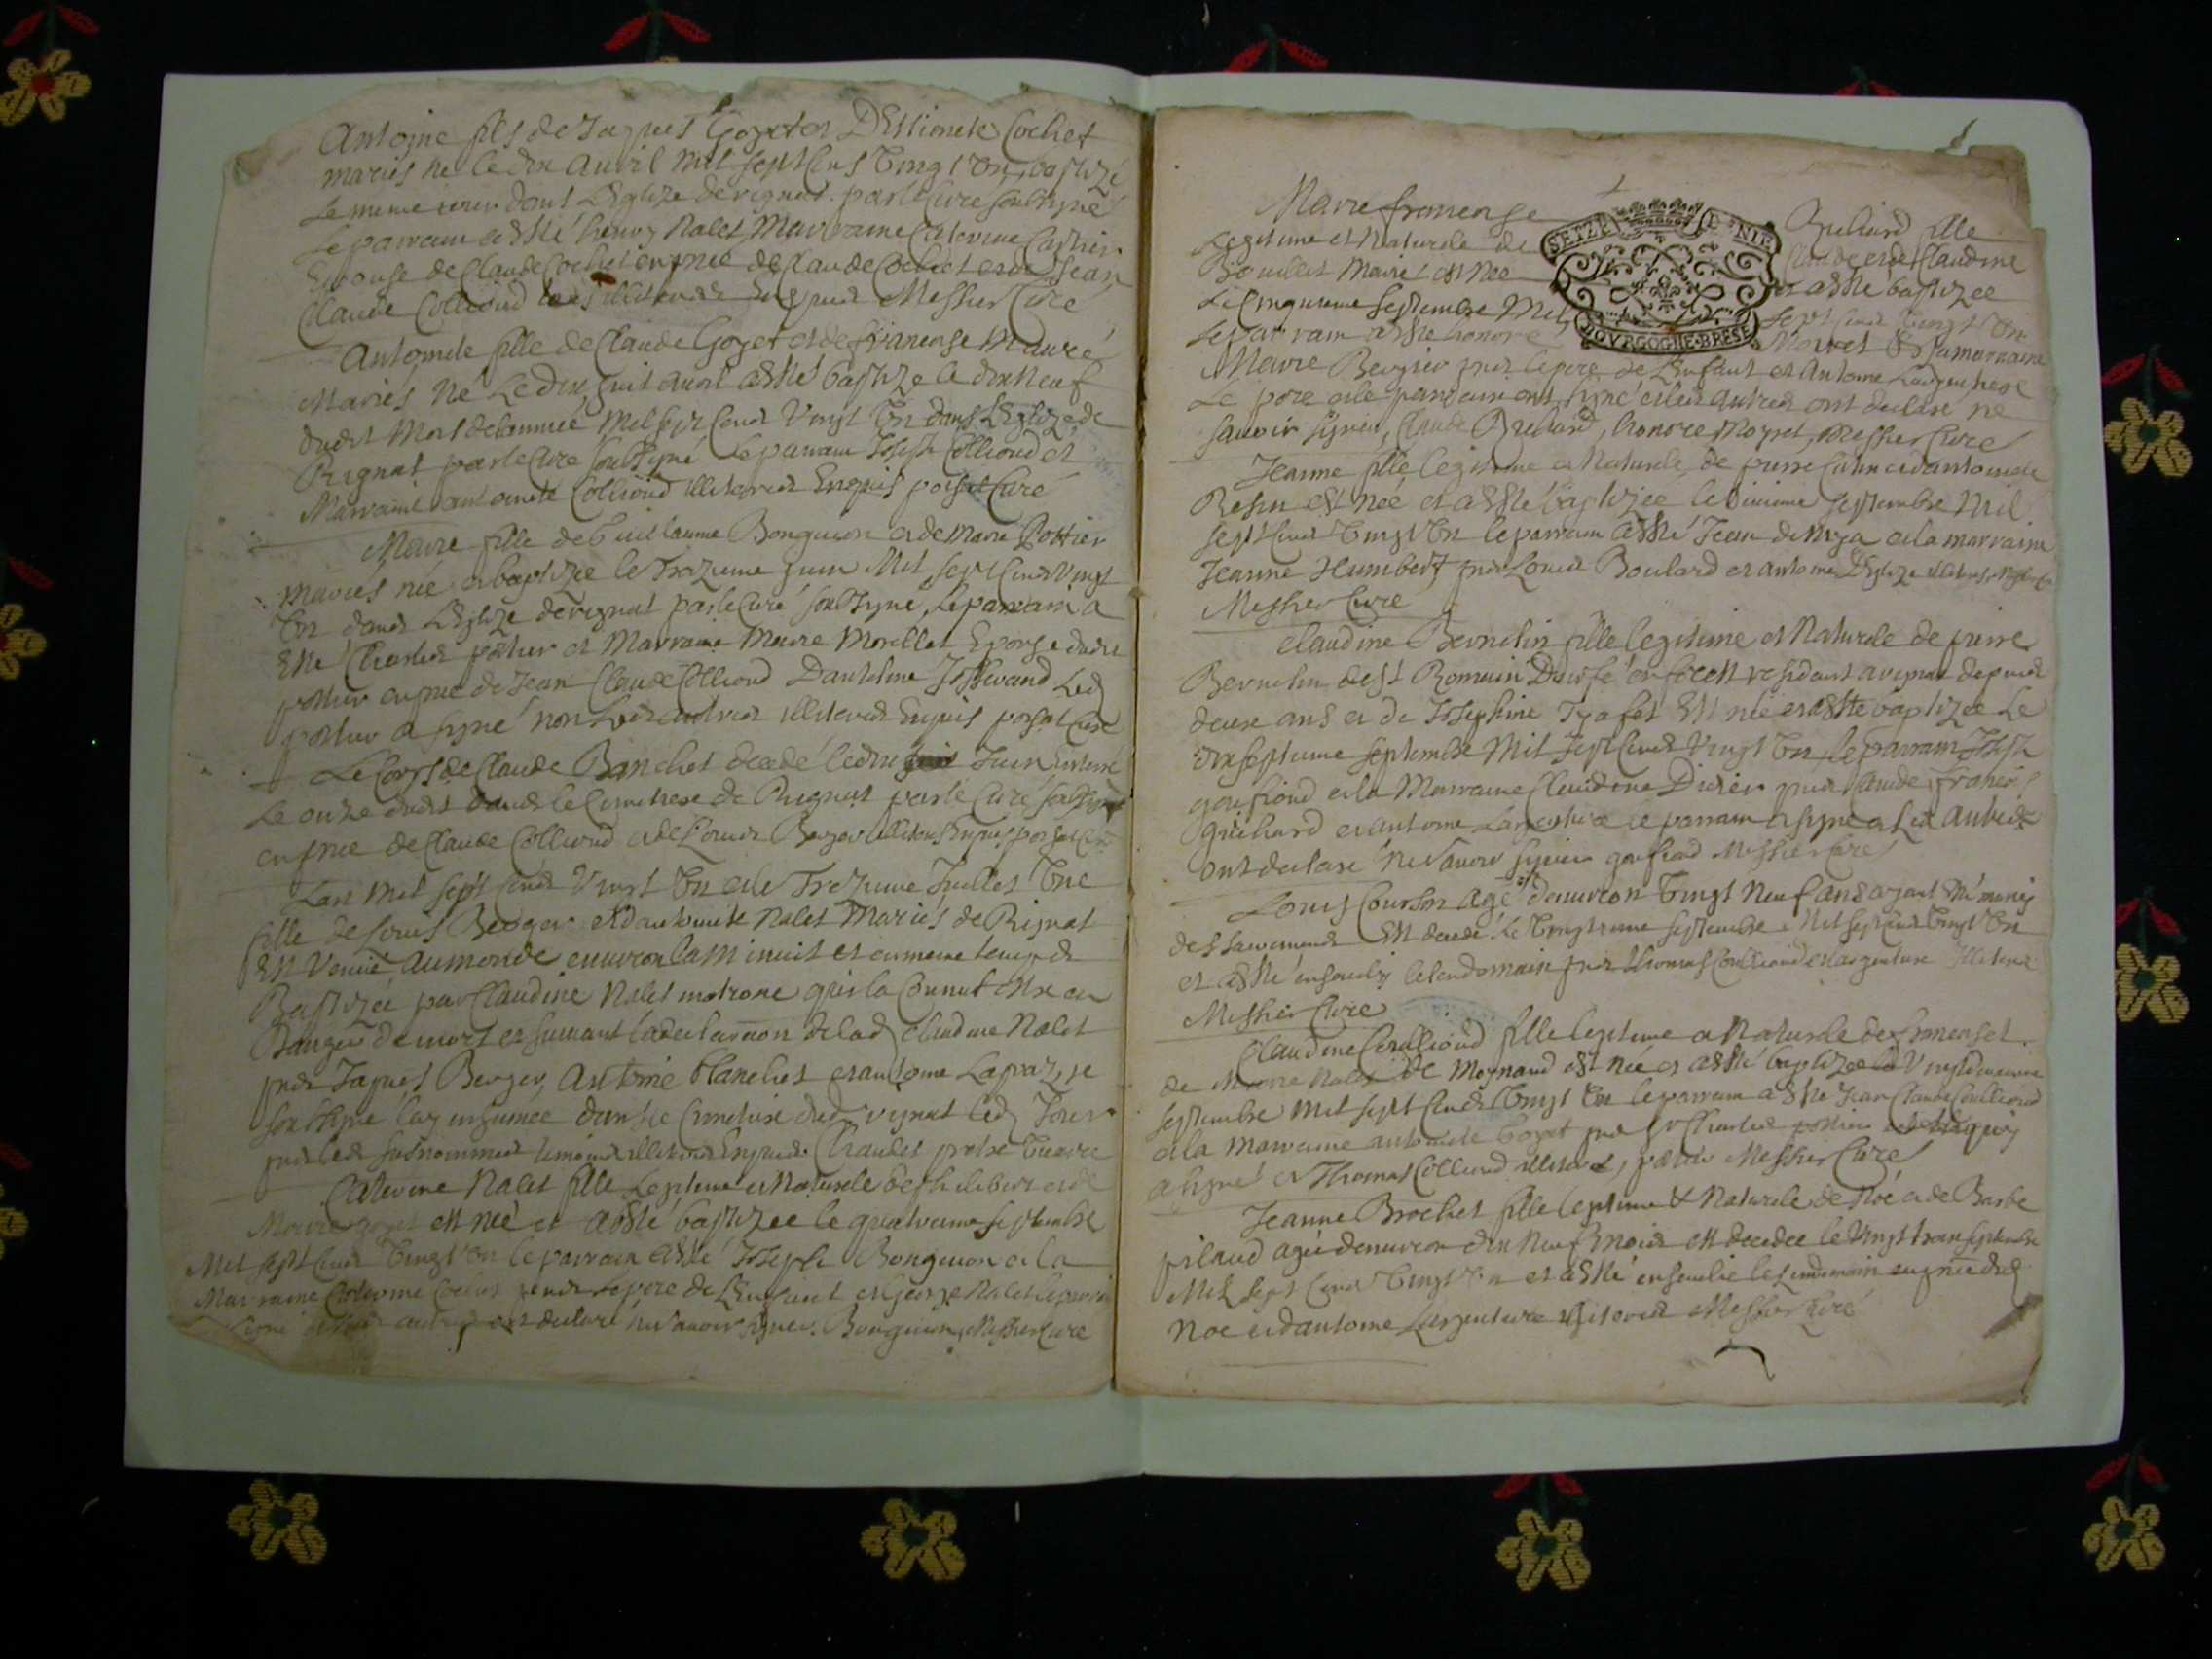 Antoine fils de Jaques Goyet et D'Ettienete Cochet
mariés né le dix Avril mil sept cens vingt un, baptizé
le meme jour dans l'Eglize de rignat par le Curé soubsigné
le parrain a esté henry Nalet, Marraine Caterine
Epouse de Claude Cochet en pnce de Claude Cochet et de Jean
Claude Collioud illiterés Messier Curé
Antoinete fille de Claude Goyet et de françoise
Mariés né le dix huit avril a esté baptize le dix neuf
dudit Mois de l'année Mil sept cens vingt un dans l'Eglize de
Rignat par le Curé soubsigné le parrain Joseph Collioud et
Marraine antoinete Collioud illiterés Enquis Curé
Marie fille de Guillaume Bonguion et de Marie Pottier
mariés née et baptizee le Trezieme Juin Mil sept cens vingt
un dans l'Eglize de rignat par le Curé soubsigné, le parrain a
esté Charles potier et Marraine Marie Morellet Epouse dudit
potier en pnce de Jean Claude Collioud D'anthelme led
potier a signé non les autres illiterés Enquis Curé
Le Corps de Claude Blanchet decedé le dix Juin Enterré
le onze dudit dans le Cimetiere de Rignat par le Curé soubsigné
en pnce de Claude Collioud et de Louis Berger illiterés Enquis
L'an Mil sept cens vingt un et le Trezieme Juillet une
fille de Louis Berger et d'antoinete Nalet Mariés de Rignat
est venue au monde environ la minuit et en meme temps
Baptizée par Claudine Nalet matrone qui la Connut estre en
Danger de mort et suivant la declaration de lad Claudine Nalet
pnts Jaques Berger, Antoine blanchet et antoine Lapraz, je
soubsigné l'ay inhumée dans le Cimetiere dud rignat led Jour
pnts les susnommes temoins illiterés Enquis Chaudet pretre vicaire
Caterine Nalet fille legitime et Naturele de philibert et de
Marie goyet est née et a esté baptizee le quatrieme septembre
Mil sept cens vingt un le parrain a esté Joseph Bonguion et la
Marraine Caterine Cochet pnts le pere de l'Enfant et George Nalet le parrain
signé et les autres ont declaré ne savoir signer. Bonguion, Messier Curé
Marie françoise Brehard fille
legitime et Naturele de Claude et de Claudine
Bouillet Mariés est née et a esté baptizee
le Cinquieme septembre Mil sept cens vingt un
le parrain a esté honoré Moyret et sa marraine
Marie Bergier pnts le pere de l'Enfant et Antoine Largentiere
le pere et le parrain ont signé et les autres ont declaré ne
savoir signer, Claude Brehard, honoré Moyret, Messier Curé
Jeanne fille legitime et Naturele de pierre et d'antoinete
est née et a esté baptizee le septembre Mil
sept cens vingt un le parrain a esté Jean et la marraine
Jeanne Humbert pnts Louis Boulard et antoine
Messier Curé
Claudine Bernelin fille legitime et Naturele de pierre
Bernelin de St Romain residant a rignat depuis
deux ans et de Josephine est née et a esté baptizée le
dix septieme septembre Mil sept cens vingt un le parrain Joseph
goufiond et la Marraine Claudine Didier pnts Claude françois
Guichard et antoine Largentiere le parrain a signé et les autres
ont declaré ne savoir signer goufiond Messier Curé
Louis Courson agé d'environ vingt neuf ans ayant eté muny
des sacremens est decedé le vingtieme septembre Mil sept cens vingt un
et a esté ensevely le lendemain pnts thomas Coullioud et largentiere Illiterés
Messier Curé
Claudine Coullioud fille legitime et Naturele de françois et
de Marie Nalet de Moynaud est née et a esté baptizee le
septembre mil sept cens vingt un le parrain a esté Jean Claude Coullioud
et la marraine antoinete Goyet pnts Sr Charles pottier qui
a signé et Thomas Collioud illiteré, pottier Messier Curé
Jeanne Brochet fille legitime & Naturele de Noé et de Barbe
pilaud agée d'environ dix Neuf mois est decedee le vingt trois septembre
Mil sept cens vingt un et a esté ensevelie le lendemain en pnce dud
Noe et d'antoine Largentiere illiterés Messier Curé
SEIZE DENIE
BOVRGOGNE·BRESE